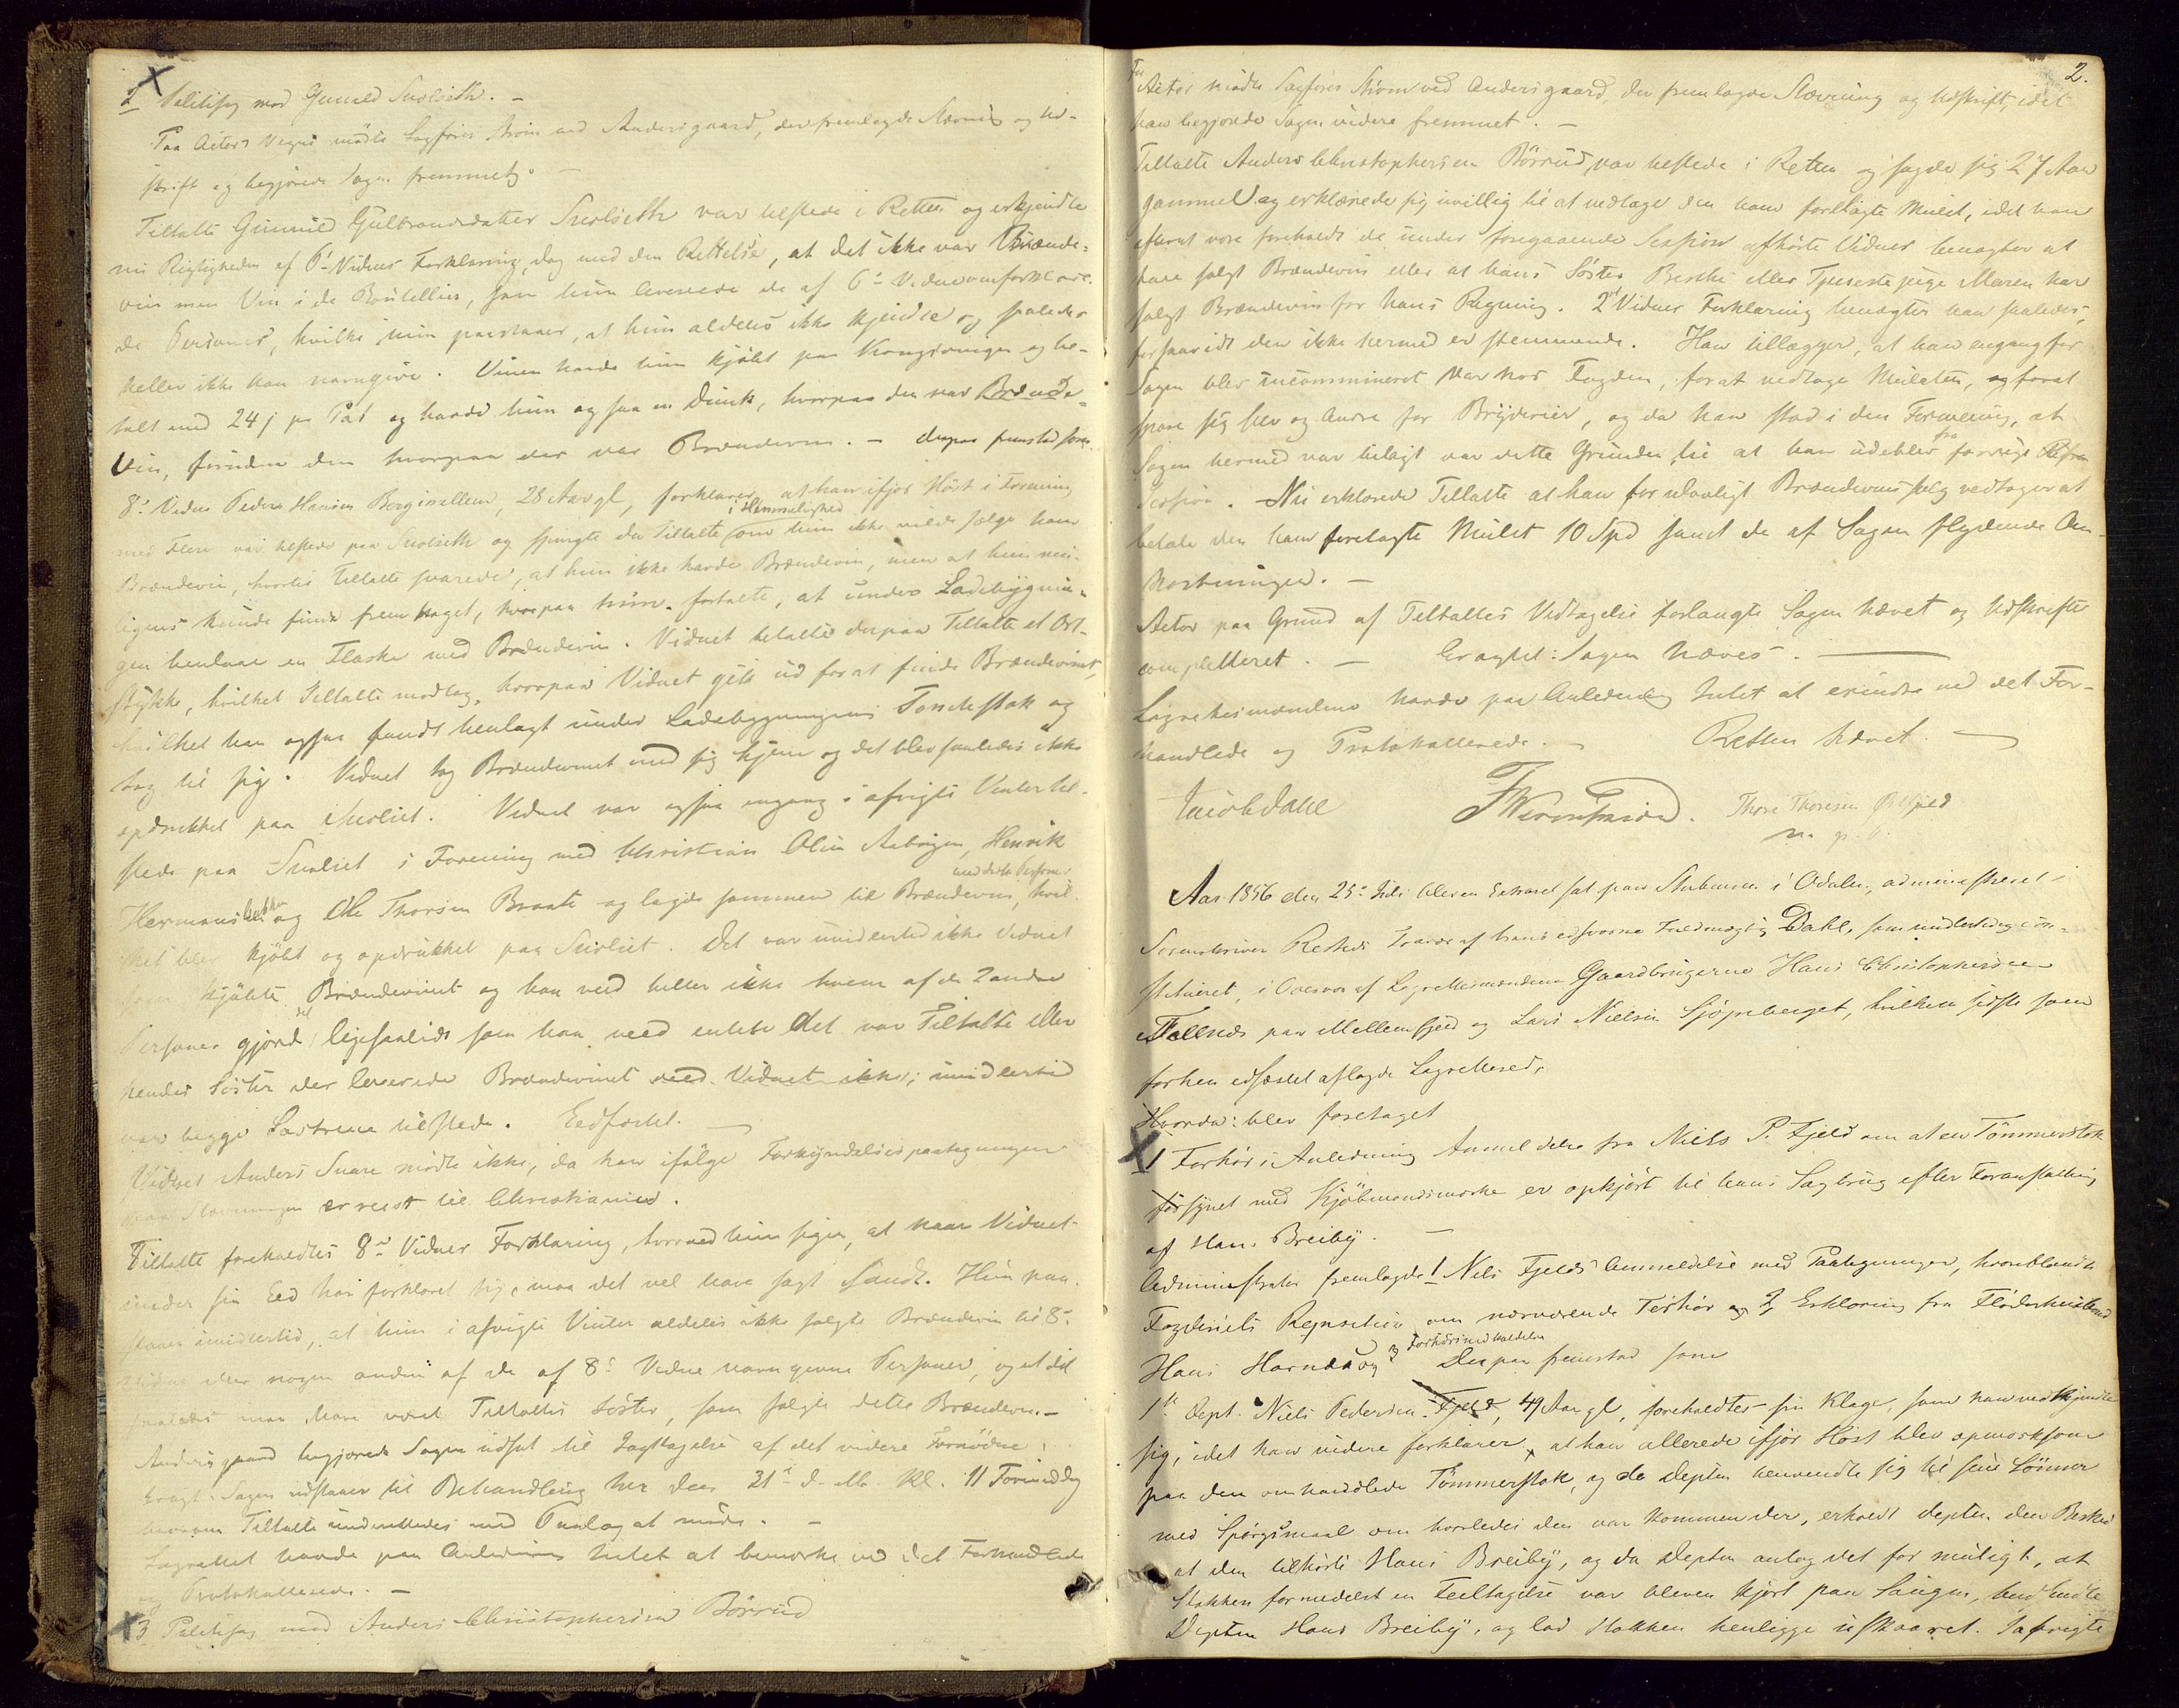 2 Politisag mod Gunild Snolseth. –
Paa Actors Vegne mödte Sagförer Strøm ved Andersgaard, der fremlagde Stævning og Ud-
skrift og begjærede Sagen fremmet. –
Tiltalte Gunnild Gulbrandsdatter Snolseth var tilstede i Retten og erkjendte
nu Rigtigheden af 6te Vidnes Forklaring, dog med den Rettelse, at det ikke var Brænde-
viin men Vin i de Bouteillier, som hun leverede de af 6te Vidne omforklare-
de Personer, hvilke hun paastaaer, at hun aldeles ikke kjendte og saaledes
heller ikke kan navngive. Vinen havde hun kjöbt paa Kongsvinger og be-
talt med 24 s pr Pot og havde hun ogsaa en Dunk, hvorpaa der var Brænde-
Vin, foruden den hvorpaa der var Brændeviin. – derpaa fremstod som
8de Vidne Peder Hansen 28 Aar gl, forklarer, at han ifjor Höst i Forening
i Hemmelighed
med Flere var tilstede paa Snolseth og spurgte da Tiltalte om hun ikke vilde sælge ham
Brændeviin, hvortil Tiltalte svarede, at hun ikke havde Brændeviin, men at han mu-
ligens kunde finde frem noget, hvorpaa hun fortalte, at under Ladebygnin-
gen henlaae en Flaske med Brændeviin. Vidnet betalte derpaa Tiltalte et Ort-
stykke, hvilket Tiltalte modtog, hvorpaa Vidnet gik ud for at finde Brændevinet,
hvilket han ogsaa fandt henlagt under Ladebygningens Tomtestok og
tog til sig. Vidnet tog Brændevinet med sig hjem og det blev saaledes ikke
opdrukket paa Snolset. Vidnet var ogsaa engang i afvigte Vinter til-
stede paa Snolset i Forening med Christian Olsen Henrik
med dette Personer
Hermans og Ole Thorsen Braate og lagde sammen til Brændeviin, hvil-
ket blev kjöbt og opdrukket paa Snolset. Det var imidlertid ikke Vidnet
som kjöbte Brændevinet og han veed heller ikke hvem af de 2 andre
det
Personer gjorde, ligesaalidt som han veed enten det var Tiltalte eller
hendes Söster der leverede Brændevinet veed Vidnet ikke; imidlertid
var begge Söstrene tilstede. Eedfæstet. –
Vidnet Anders Snare mödte ikke, da han ifölge Forkyndelsespaategningen
paa Stævningen er reist til Christiania.
Tiltalte foreholdtes 8de Vidnes Forklaring, hvorved hun siger, at naar Vidnet
under sin Eed har forklaret sig, maa det vel have sagt Sandt. Hun paa-
staaer imidlertid, at hun i afvigte Vinter aldeles ikke solgte Brændeviin til 8de
Vidne eller nogen anden af de af 8de Vidne navngivne Personer, og at det
saaledes maa have været Tiltaltes Söster, som solgte dette Brændeviin. –
Andersgaard begjærede Sagen udsat til Iagttagelse af det videre Fornödne.
Eragt: Sagen udstaaer til Behandling her den 31te d. M. Kl. 11 Formiddag
hvorom Tiltalte underrettedes med Paalæg at möde. –
Lagrettet havde paa Anledning Intet at bemærke ved det Forhandlede
og Protokollerede. –
3 Politisag mod Anders Christophersen Börrud

2.
For Actor mödte Sagförer Strøm ved Andersgaard, der fremlagde Stævning og Udskrift, idet
han begjærede Sagen videre fremmet. –
Tiltalte Anders Christophersen Börrud, var tilstede i Retten og sagde sig 27 Aar
gammel og erklærede sig uvillig til at vedtage den ham forelagte Mulct, idet han
efterat være foreholdt de under foregaaende Session afhörte Vidner benægter at
have solgt Brændeviin eller at hans Söster Berthe eller Tjenestepige Maren har
solgt Brændeviin for hans Regning. 2det Vidnes Forklaring benægter han saaledes,
forsaavidt den ikke hermed er stemmende. Han tillægger, at han engang för
Sagen blev incamineret var hos Fogden, for at vedtage Mulcten, og for at
spare sig selv og Andre for Bryderier, og da han stod i den Formening, at
fra
Sagen hermed var bilagt var dette Grunden til at han udeblev forrige
Session. Nu erklærede Tiltalte at han for ulovligt Brændeviinssalg vedtager at
betale den ham forelagte Mulct 10 Spd samt de af Sagen flydende Om-
kostninger. –
Actor paa Grund af Tiltaltes Vedtagelse forlangte Sagen hævet og Udskrifter
completteret. – Eragtet: Sagen hæves. –
Lagrettesmændene havde paa Anledning Intet at erindre ved det For-
handlede og Protokollerede. – Retten hævet. –
Jacob Dahl Thore Thoresen
m. p. P.
Aar 1856 den 25de Juli blev en Extraret sat paa i Odalen, administreret i
Sorenskriver Fravær af hans edsvorne Fuldmægtig Dahl, som midlertidig con-
stitueret, i Overvær af Lagrettesmændene Gaardbrugerne Hans Christophersen
paa Mellemfjeld og Lars Nielsen Sjöpeberget, hvilken sidste som
forhen edfæstet aflagde Lagretteseed,
Hvorda: blev foretaget
1 Forhör i Anledning Anmeldelse fra Niels P. Fjeld om at en Tömmerstok
forsynet med Kjöbmandsmærke er opkjört til hans Sagbrug efter Foranstaltning
af Hans Breiby. –
Administrator fremlagde 1 Nils Fjelds Anmeldelse med Paategninger, hvoriblandt
Fogderiets Reqvisition om nærværende Forhör og 2 Erklæring fra
3 Forhörsindkaldelse
Hans Hornæs og Derpaa fremstod som
1ste Dept. Niels Pedersen Fjeld, 49 Aar gl, foreholdtes sin Klage, som han vedkjendte
sig, idet han videre forklarer, at han allerede ifjor Höst blev opmærksom
paa den omhandlede Tömmerstok, og da Depten henvendte sig til sine Sönner
med Spörgsmaal om hvorledes den var kommen der, erholdt Depten den Besked
at den tilhörte Hans Breiby, og da Depten antog det for muligt, at
Stokken formedelst en Feiltagelse var bleven kjört paa Saugen,
Depten Hans Breiby, og lod Stokken henligge uskaaret. I afvigte